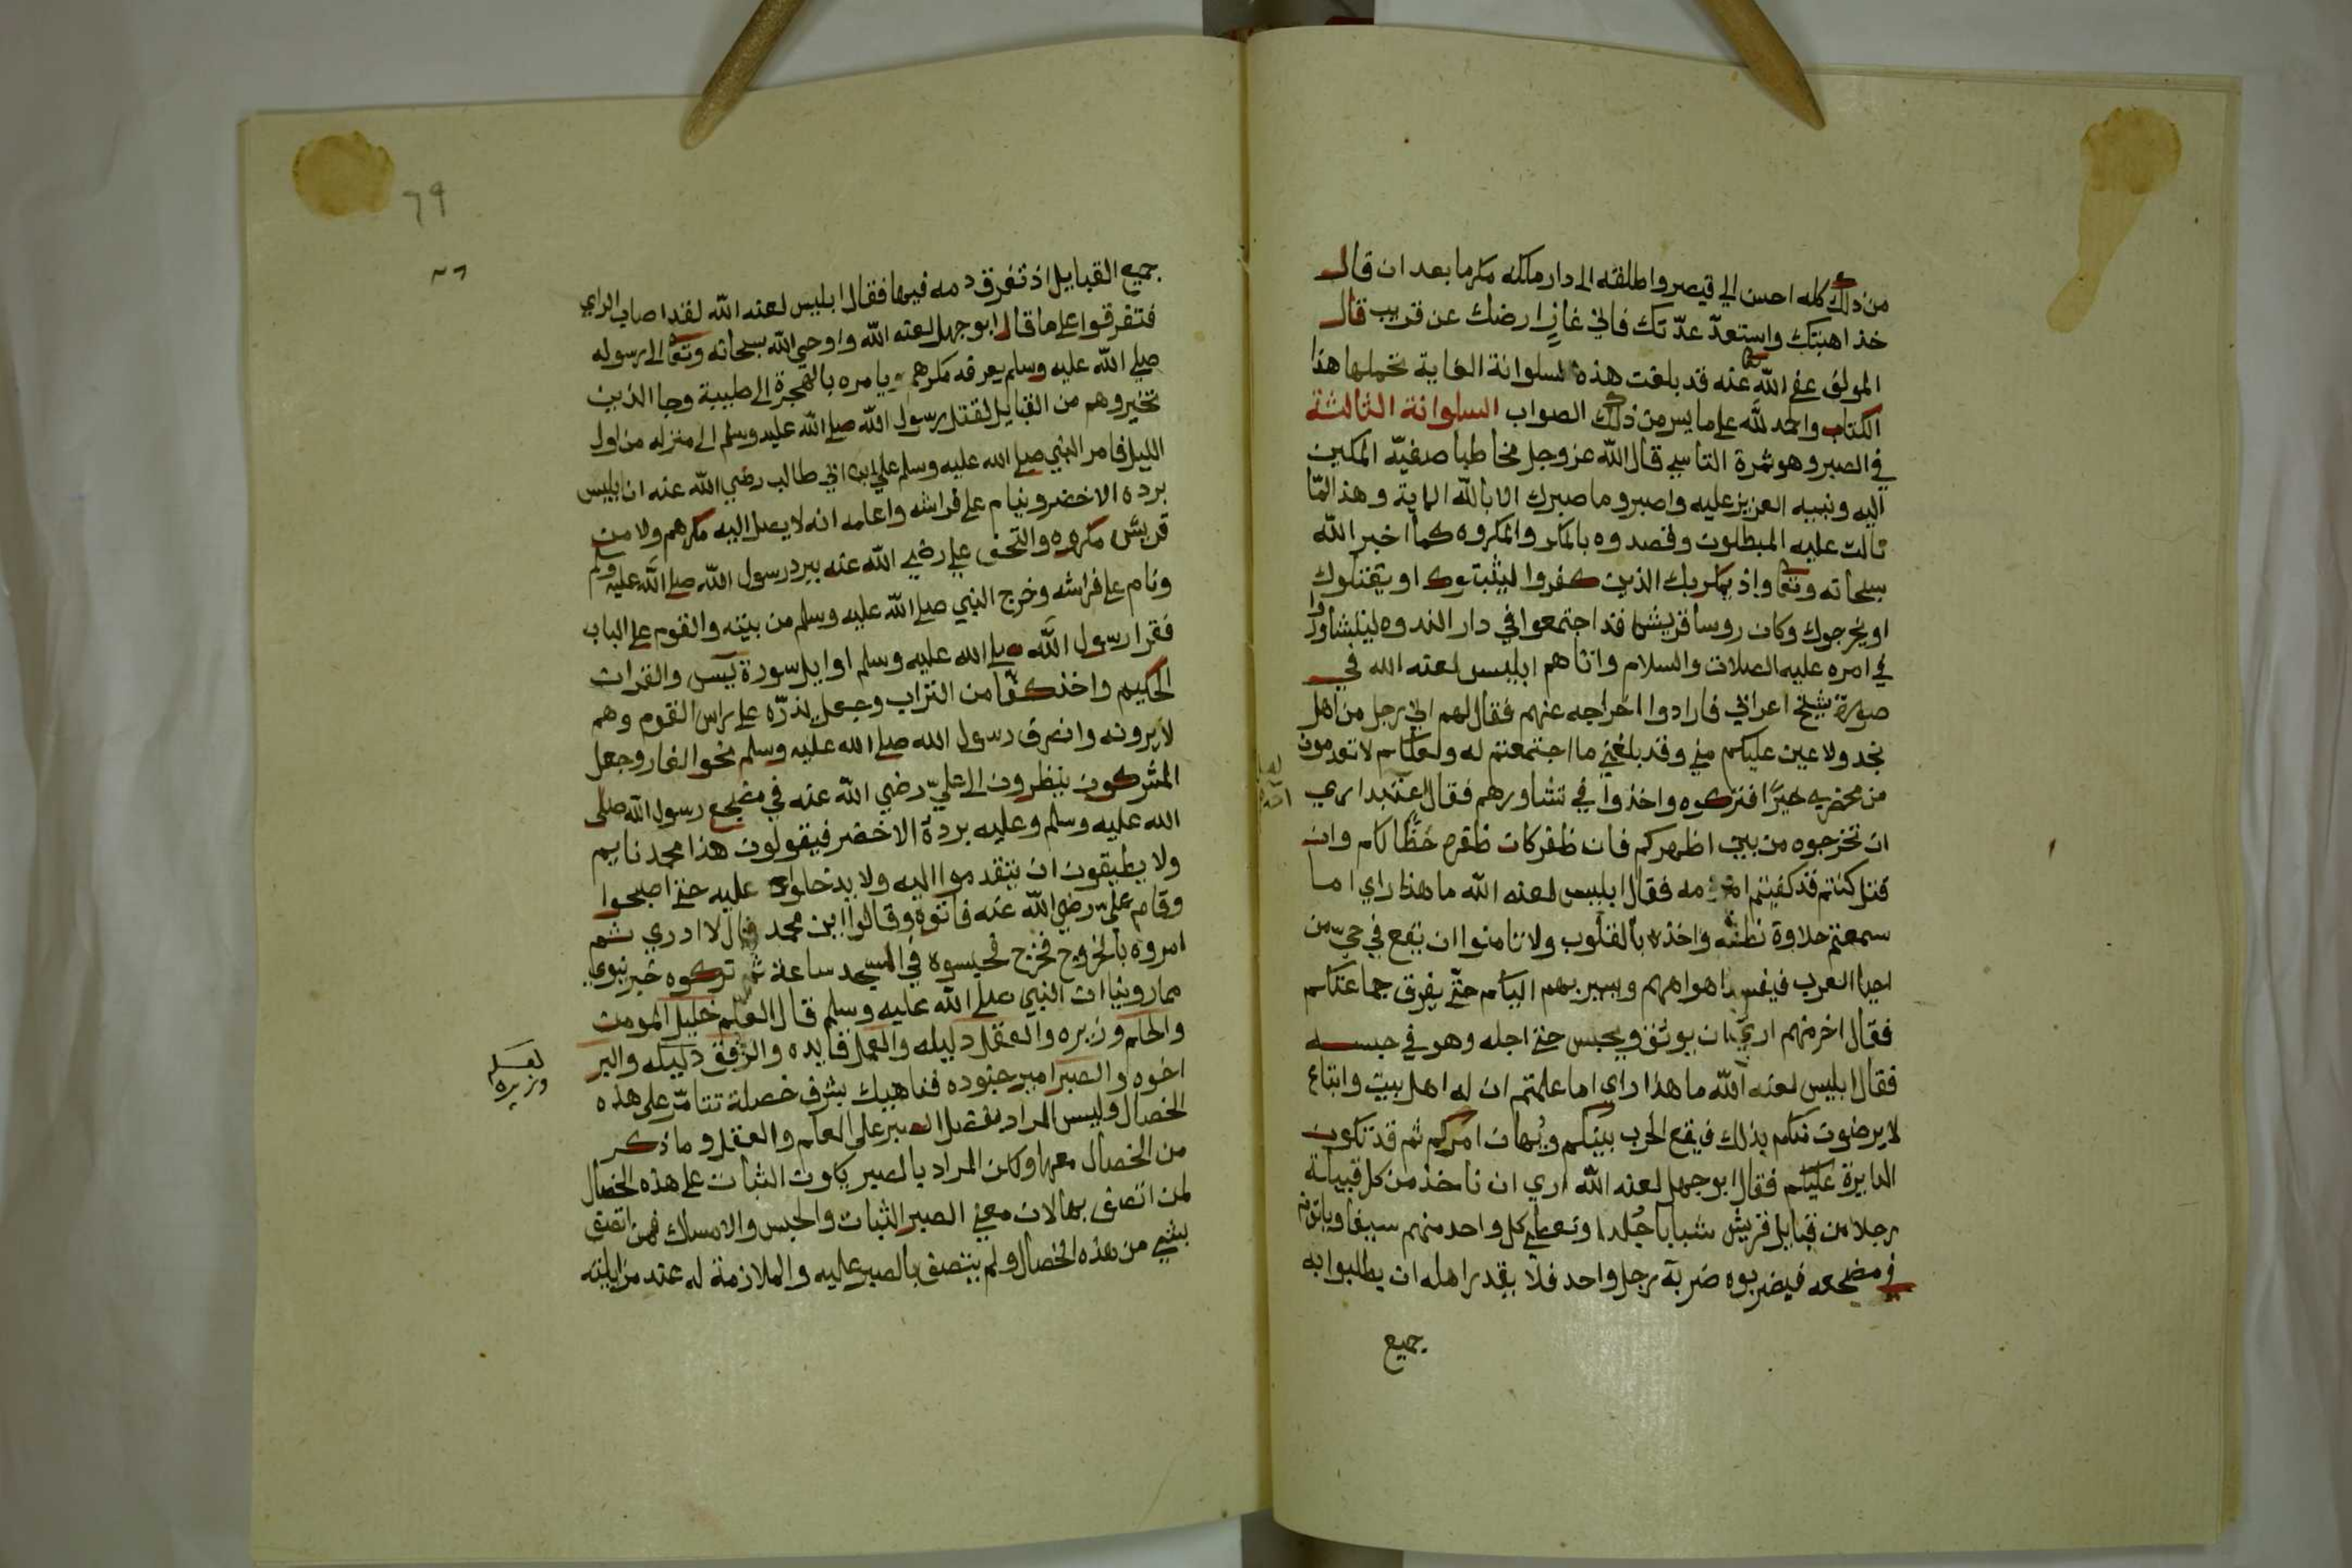 من ذلك كله احسن الي قيصر واطلقه الى دار ملكه مكرما بعد ان قال
خذ اهبتك واستعدّ عدّتك فاني غازٍ ارضك عن قريب قال
المولف عفى الله عنه قد بلغت هذه السلوانة الغاية تحملها هذا
الكتاب والحمد لله على ما يسر من ذلك الصواب السلوانة الثالثة
في الصبر وهو ثمرة التاسي قال الله عز وجل مخاطبا صفيّه المكين
اليه ونبيه العزيز عليه واصبر وما صبرك الا بالله الاية وهذا لمّا
تالت عليه المبطلون وقصدوه بالمكر والمكروه كما اخبر الله
سبحانه وتعا واذ يمكر بك الذين كفروا ليثبتوك او يقتلوك
او يخرجوك وكان روسا قريش قد اجتمعوا في دار الندوه ليتشاوروا
في امره عليه الصلات والسلام واتاهم ابليس لعنه الله في
صورة شيخ اعرابي فارادوا اخراجه عنهم فقال لهم اني رجل من اهل
نجد ولا عين عليكم مني وقد بلغني ما اجتمعتم له ولعلكم لا تعدمون
من محضريه خيرًا فتركوه واخذوا في تشاورهم فقال احدهم اري
ان تخرجوه من بين اظهركم فان ظفر كان ظفره حظًا لكم وان
قتل كنتم قد كفيتم امره فقال ابليس لعنه الله ما هذا راي اما
سمعتم حلاوة نطقه واخذه بالقلوب ولا تامنوا ان يقع في حيّ من
احيا العرب فيفسد اهواهم ويسير بهم اليكم حتّى يفرق جماعتكم
فقال اخر منهم اري ان يوثق ويحبس حتى اجله وهو في حبسه
فقال ابليس لعنه الله ما هذا راي اما علمتم ان له اهل بيت واتباع
لا يرضون منكم بذلك فيقع الحرب بينكم ويُهان امركم ثم قد تكون
الدايرة عليكم فقال ابو جهل لعنه الله اري ان ناخذ من كل قبيلة
رجلا من قبايل قريش شبابا جُلدا ونعطي كل واحد منهم سيفا وياتونه
في مضجعه فيضربوه ضربة رجل واحد فلا يقدر اهله ان يطلبوا به
جميع
٦٩
جميع القبايل اذ تفرق دمه فيها فقال ابليس لعنه الله لقد اصاب الراي
فتفرقوا على ما قال ابو جهل لعنه الله واوحي الله سبحانه وتعا الى رسوله
صلى الله عليه وسلم يعرفه مكرهم ويامره بالهجرة الى طيبة وجا الذين
تخيروهم من القبايل لقتل رسول الله صلى الله عليه وسلم الى منزله من اول
الليل فامر النبي صلى الله عليه وسلم علي ابن ابي طالب رضي الله عنه ان يلبس
برده الاخضر وينام على فراشه واعلمه انه لا يصل اليه مكرهم ولا من
قريش مكروه والتحف علي رضي الله عنه ببرد رسول الله صلى الله عليه وسلم
ونام على فراشه وخرج النبي صلى الله عليه وسلم من بيته والقوم على الباب
فقرا رسول الله صلى الله عليه وسلم اوايل سورة يٓس والقران
الحكيم واخذ كفّا من التراب وجعل يذرّه على راس القوم وهم
لا يرونه وانصرف رسول الله صلى الله عليه وسلم نحو الغار وجعل
المشركون ينظرون الى عليّ رضي الله عنه في مضجع رسول الله صلى
الله عليه وسلم وعليه بردة الاخضر فيقولون هذا محمد نايم
ولا يطيقون ان يتقدموا اليه ولا يدخلوا عليه حتى اصبحوا
وقام عليّ رضي الله عنه فاتوه وقالوا اين محمد قال لا ادري ثم
امروه بالخروج فخرج فحبسوه في المسجد ساعة ثم تركوه خبر نبوي
مما روينا ان النبي صلى الله عليه وسلم قال العلم خليل المومن
والحلم وزيره والعقل دليله والعمل قايده والرفق دليله والبر
اخوه والصبر امير جنوده فناهيك بشرف خصلة تتامّر على هذه
لعله
وزيره
الخصال وليس المراد بفضل الصبر على العلم والعقل وما ذكر
من الخصال معها ولكن المراد بالصبر يكون الثبات على هذه الخصال
لمن اتصف بها لان معنى الصبر الثبات والحبس والامساك فمن اتصف
بشي من هذه الخصال ولم يتصف بالصبر عليه والملازمة له عند مزايلته